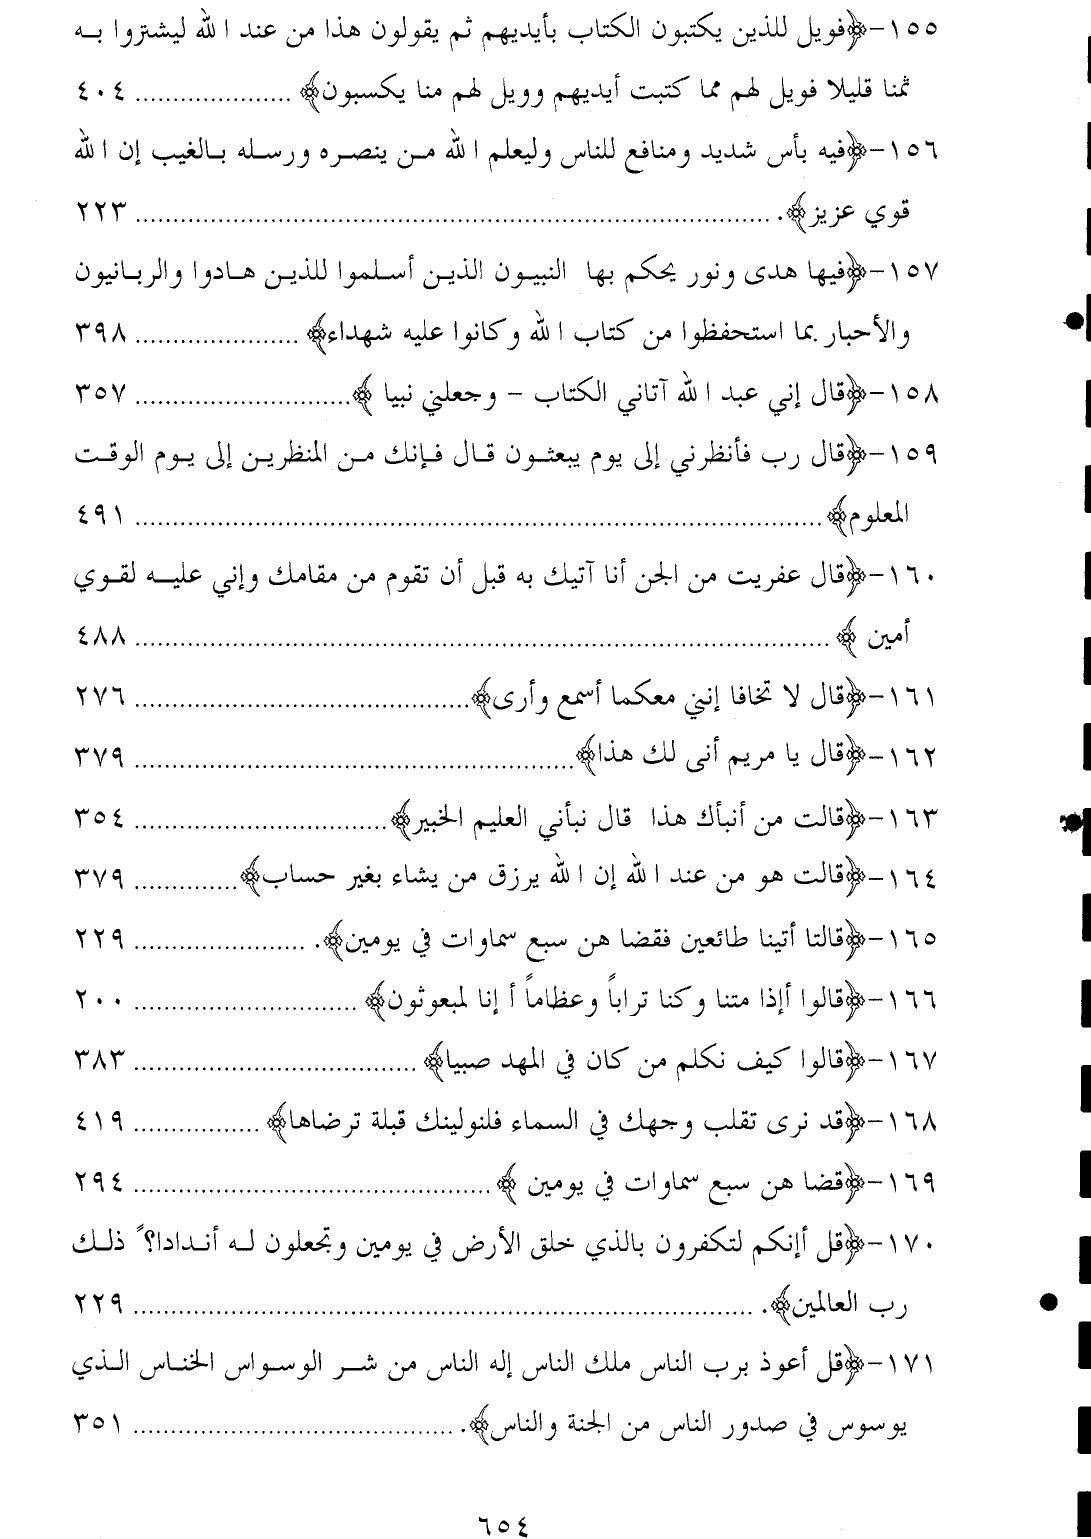 ١٥٥-﴿فويل للذين يكتبون الكتاب بأيديهم ثم يقولون هذا من عند الله ليشتروا به
ثمنا قليلا فويل لهم مما كتبت أيديهم وويل لهم منا يكسبون﴾ ..................... ٤٠٤
١٥٦-﴿فيه بأس شديد ومنافع للناس وليعلم الله من ينصره ورسله بالغيب إن الله
قوي عزيز﴾. ..................................................................................... ٢٢٣
١٥٧-﴿فيها هدى ونور يحكم بها النبيون الذين أسلموا للذين هادوا والربانيون
والأحبار بما استحفظوا من كتاب الله وكانوا عليه شهداء﴾ ...................... ٣٩٨
١٥٨-﴿قال إني عبد الله آتاني الكتاب - وجعلني نبيا ﴾............................. ٣٥٧
١٥٩-﴿قال رب فأنظرني إلى يوم يبعثون قال فإنك من المنظرين إلى يوم الوقت
المعلوم﴾............................................................................................ ٤٩١
١٦٠-﴿قال عفريت من الجن أنا آتيك به قبل أن تقوم من مقامك وإني عليه لقوي
أمين ﴾ ............................................................................................. ٤٨٨
١٦١-﴿قال لا تخافا إنني معكما أسمع وأرى﴾............................................. ٢٧٦
١٦٢-﴿قال يا مريم أنى لك هذا﴾........................................................... ٣٧٩
١٦٣-﴿قالت من أنبأك هذا قال نبأني العليم الخبير﴾.................................. ٣٥٤
١٦٤-﴿قالت هو من عند الله إن الله يرزق من يشاء بغير حساب﴾.............. ٣٧٩
١٦٥-﴿قالتا أتينا طائعين فقضا هن سبع سماوات في يومين﴾. ....................... ٢٢٩
١٦٦-﴿قالوا أإذا متنا وكنا تراباً وعظاماً أ إنا لمبعوثون﴾ .............................. ٢٠٠
١٦٧-﴿قالوا كيف نكلم من كان في المهد صبيا﴾ ...................................... ٣٨٣
١٦٨-﴿قد نرى تقلب وجهك في السماء فلنولينك قبلة ترضاها﴾ ................. ٤١٩
١٦٩-﴿قضا هن سبع سماوات في يومين ﴾ ................................................ ٢٩٤
١٧٠-﴿قل أإنكم لتكفرون بالذي خلق الأرض في يومين وتجعلون له أندادا؟ً ذلك
رب العالمين﴾. ................................................................................... ٢٢٩
١٧١-﴿قل أعوذ برب الناس ملك الناس إله الناس من شر الوسواس الخناس الذي
يوسوس في صدور الناس من الجنة والناس﴾. ........................................... ٣٥١
٦٥٤